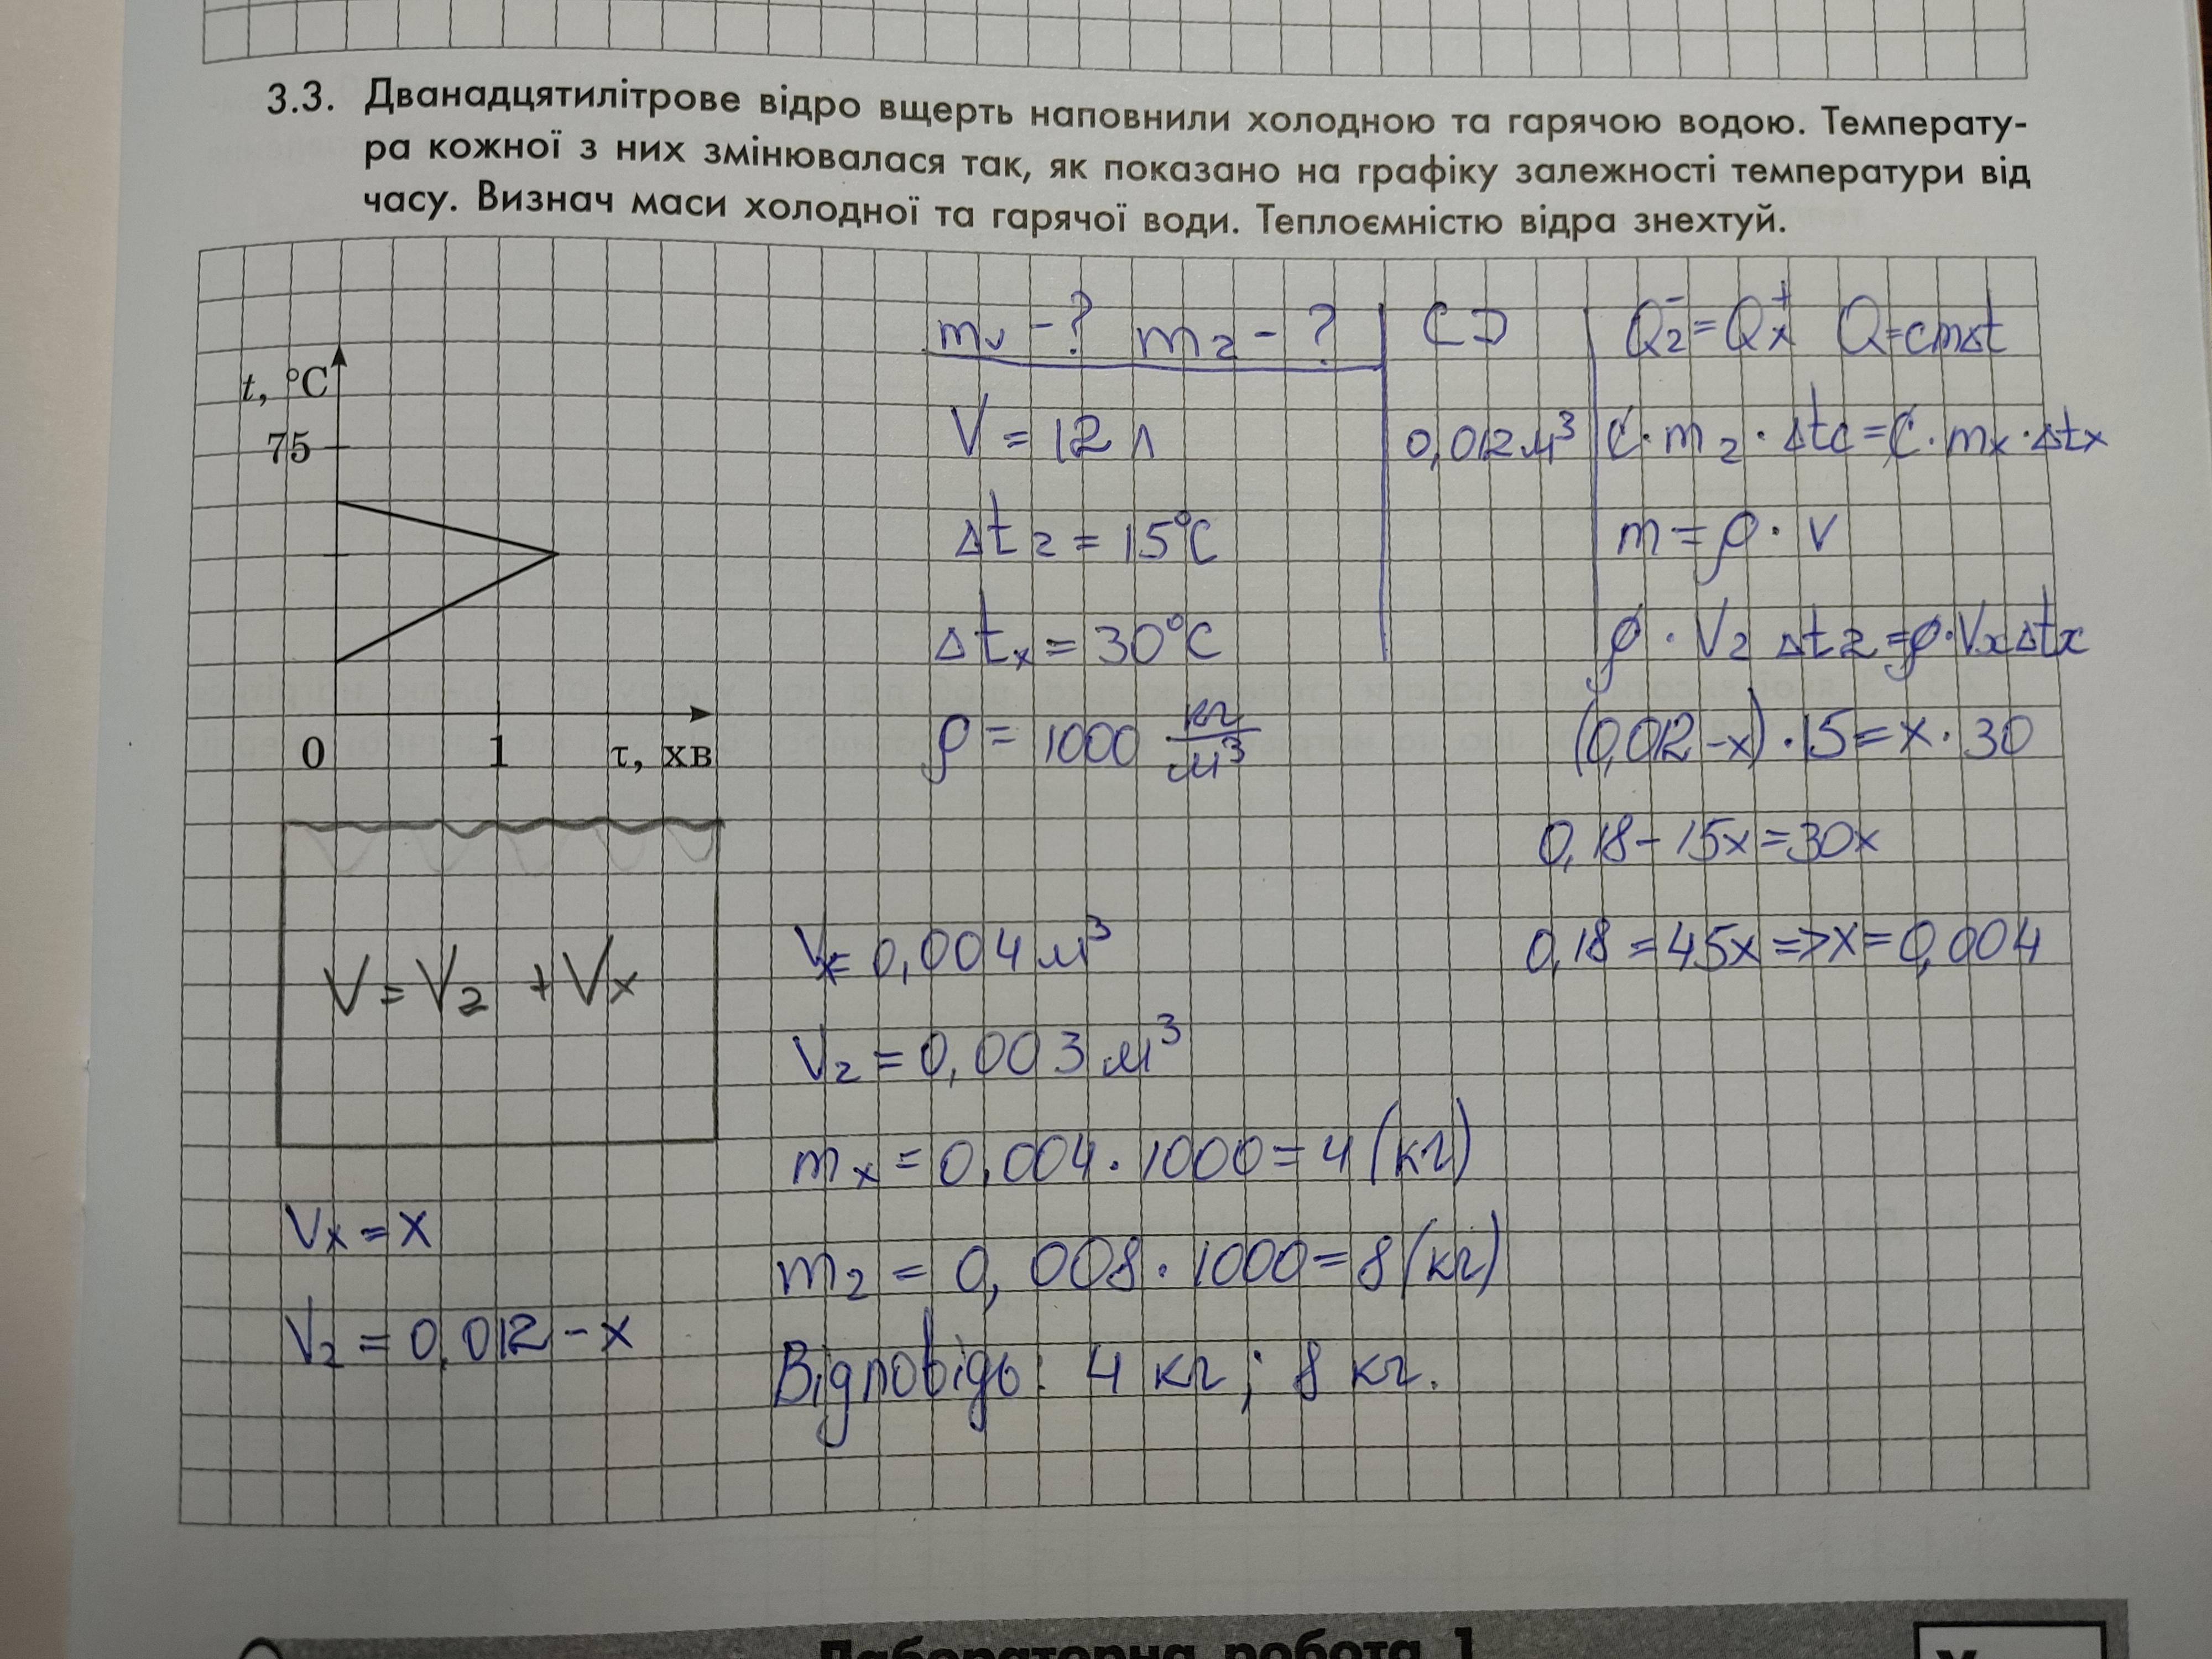 3.3. Дванадцятилітрове відро вщерть наповнили холодною та гарячою водою. Температу-
ра кожної з них змінювалася так, як показано на графіку залежності температури від
часу. Визнач маси холодної та гарячої води. Теплоємністю відра знехтуй.
t, °C
75
0 1 τ, хв
V = Vг + Vx
Vx = x
Vг = 0,012 - x
mх -? mг - ?
V = 12 л
Δtг = 15°C
Δtx = 30°C
ρ = 1000 кг/м³
СІ
0,012 м³
Qг⁻ = Qx⁺ Q=cmΔt
c · mг · Δtг = c · mx · Δtx
m = ρ · V
ρ · Vг Δtг = ρ · Vx Δtx
(0,012 - x) · 15 = x · 30
0,18 - 15x = 30x
0,18 = 45x => x = 0,004
Vx = 0,004 м³
Vг = 0,003 м³
mx = 0,004 · 1000 = 4 (кг)
mг = 0,008 · 1000 = 8 (кг)
Відповідь: 4 кг; 8 кг.
Лабораторна робота 1